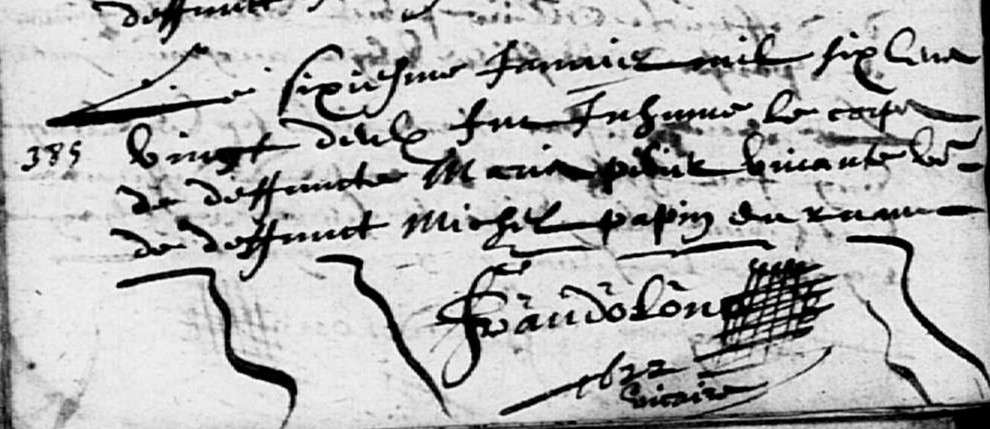 deffunct
Le sixiesme Janvier mil six cens
385 vingt deulx fut Inhumé le corps
de deffuncte Marie vivante vẽ-
de deffunct Michel papin du
Frandolon
1622
vicaire